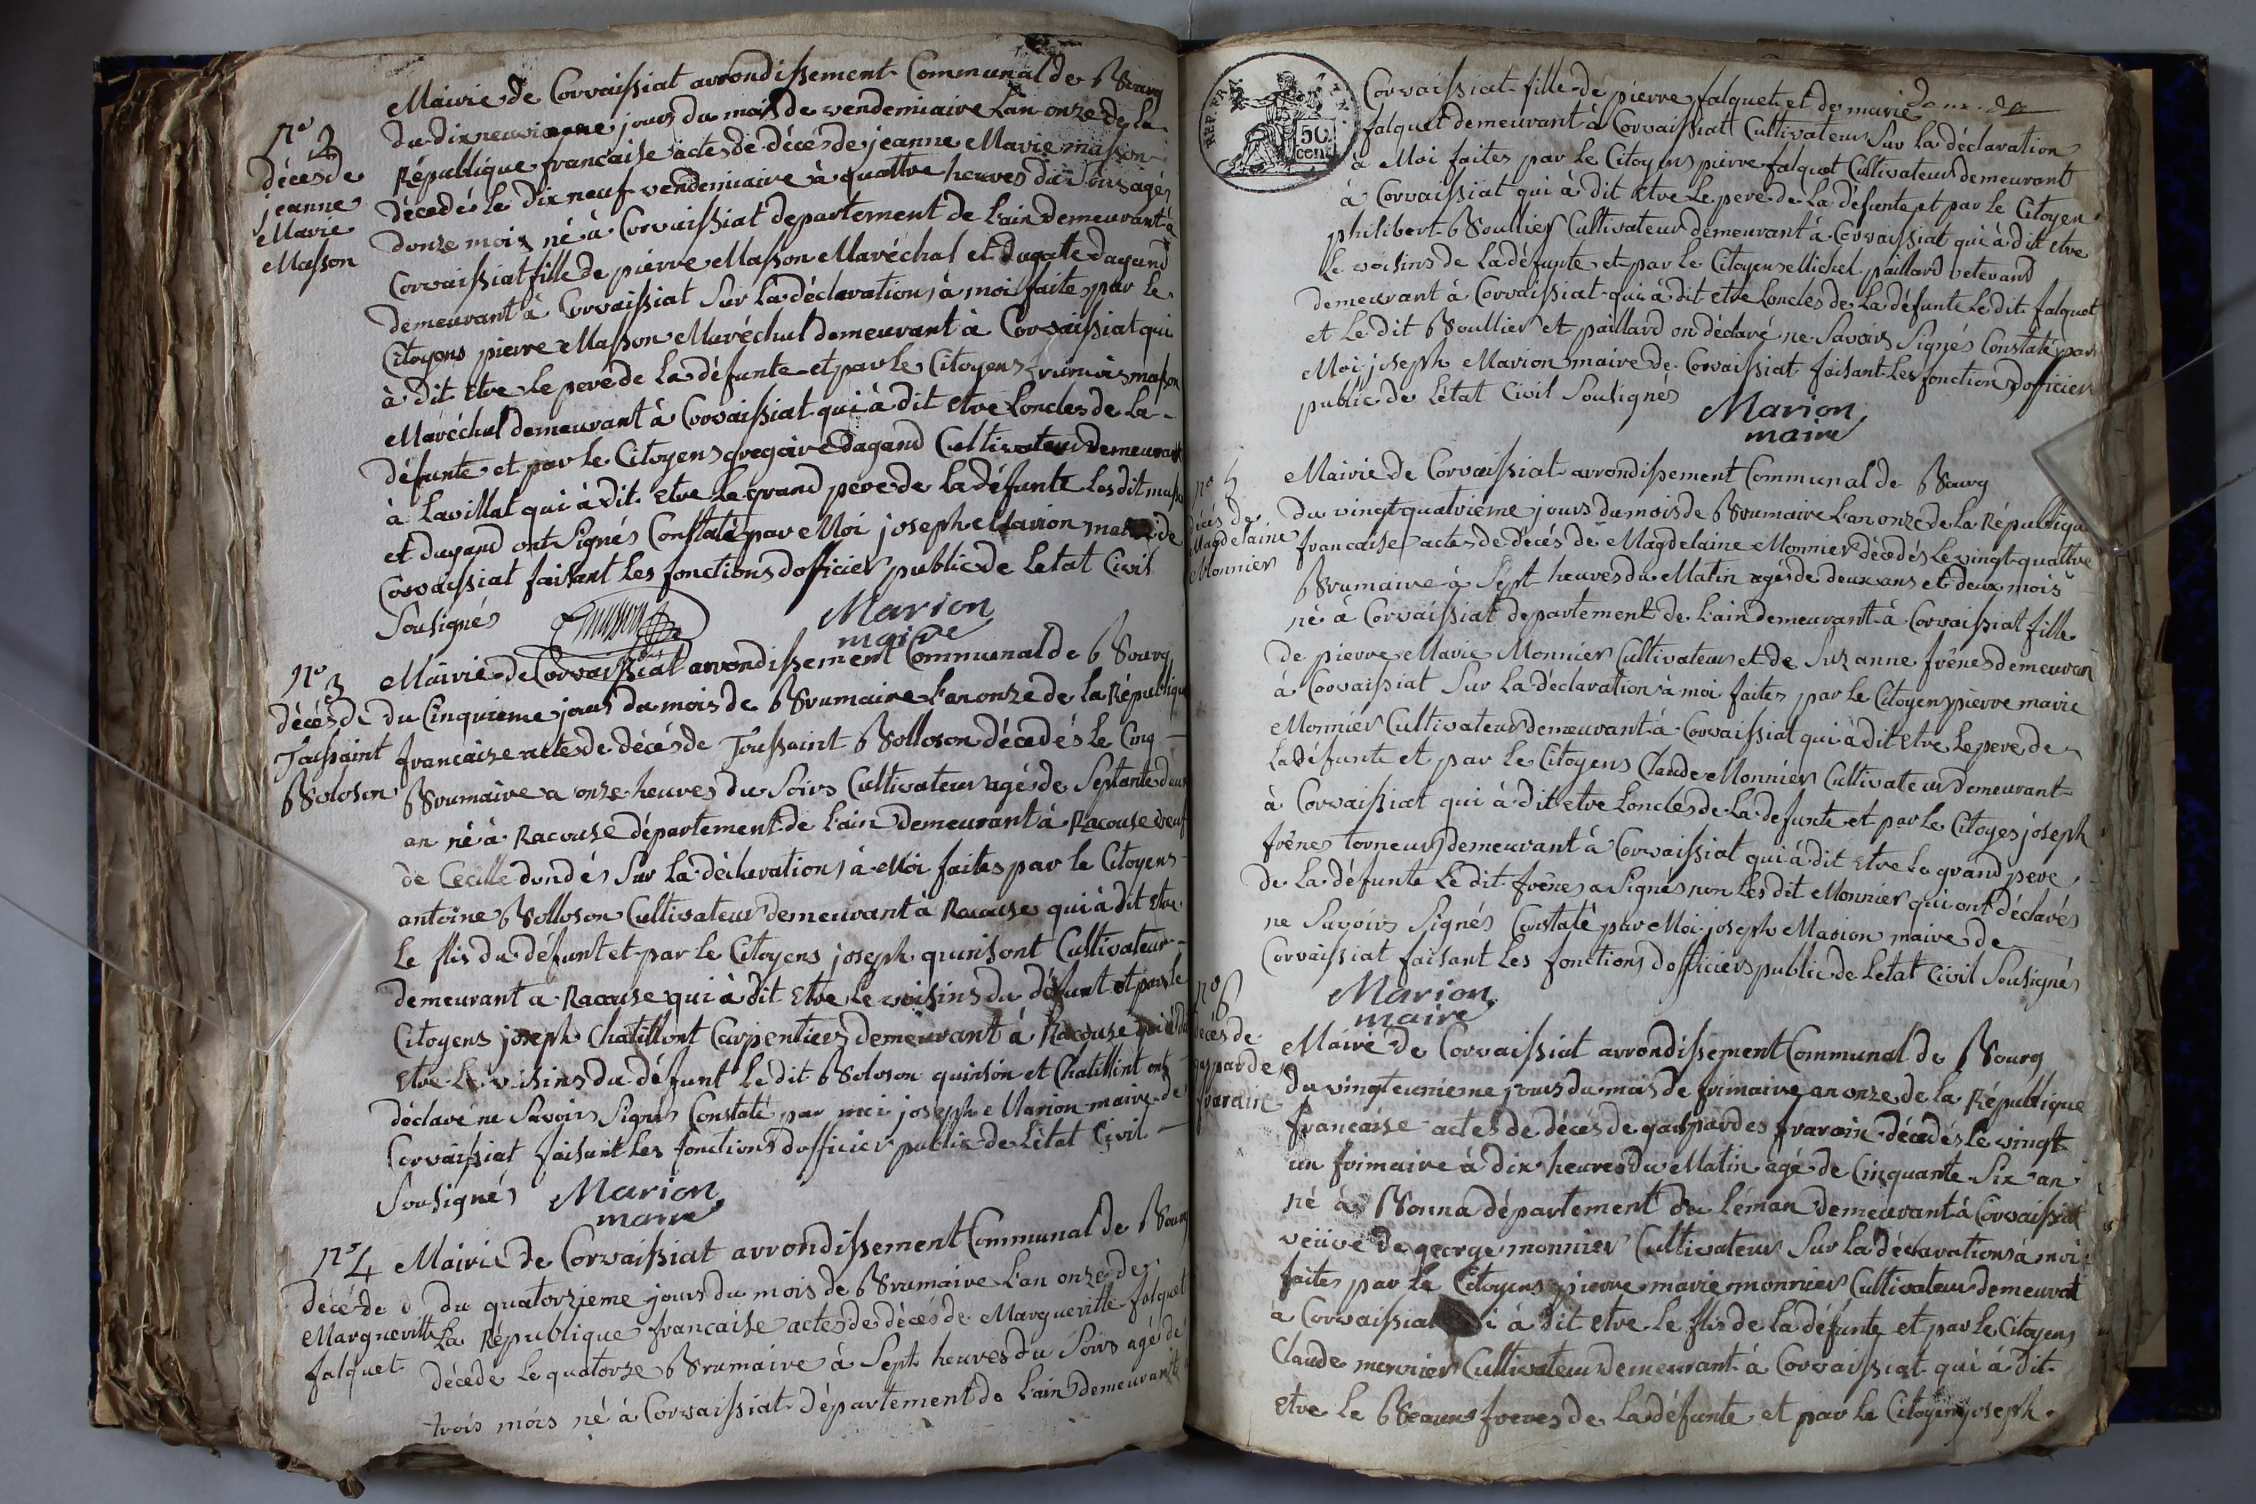 Mairie de Corvaissiat arrondissement Communal de Bourg
N° 2
décés de
jeanne
Marie
Masson
du dixneuvieme jours du mois de vendemiaire L'an onze de la
République francaise actes de décés de jeanne Marie masson
décedés le dix neuf vendemiaire à quattre heures du Soirs agés
donze mois né à Corvaissiat departement de Lain demeurant à
Corvaissiat fille de pierre Masson Maréchal et dagand
demeurant à Corvaissiat Sur La déclaration à moi faite par le
Citoyens pierre Masson Maréchal demeurant à Corvaissiat qui
à dit Etre Le pere de La défunte et par le Citoyens masson
Maréchal demeurant à Corvaissiat qui à dit Etre Loncles de La
défunte et par Le Citoyens gregoire dagand Cultivateur demeurant
à Lavillat qui à dit Etre Le grand pere de La défunte Les dit
et dagand ont Signés Constaté par Moi joseph Marion de
Corvaissiat faisant Les fonctions dofficier public de Letat Civil
Sousignés Masson Marion
maire
N° 3
décés de
Toussaint
Boloson
Mairie de Corvaissiat arrondissement Communal de Bourg
du Cinquieme jours du mois de Brumaire L'an onze de la République
francaise actes de décés de Toussaint Bolloson décedés Le Cinq
Brumaire a onze heures du Soirs Cultivateur agés de Septante deux
an né à Racouse département de Lain demeurant à Racouse veuf
de Cecille dondés Sur La déclaration à Moi faites par le Citoyens
antoine Bolloson Cultivateur demeurant à Racouse qui à dit Etre
Le flis du défunt et par le Citoyens joseph quinsont Cultivateur
demeurant a Racouse qui à dit Etre Le voisins du défunt et par le
Citoyens joseph Chatillont Carpentiers demeurant à Racouse qui à dit
Etre Le voisins du défunt Le dit Boloson quinson et Chatillint ont
déclaré ne Savoirs Signés Constaté par moi joseph Marion maire de
Corvaissiat faisant Les fonctions dofficier public de Létat Civil
Sousignés Marion
maire
N° 4
décé de
Margueritte
falquet
Mairie de Corvaissiat arrondissement Communal de Bourg
du quatorzieme jours du mois de Brumaire L'an onze de
La République francaise actes de décés de Margueritte falquet
décede Le quatorze Brumaire à Sept heures du Soirs agé de
trois mois né à Corvaissiat département de Lain demeurant
REP. FRA.
50
cent
Corvaissiat fille de pierre falquet et de marie
falquet demeurant à Corvaissiat Cultivateur Sur La déclaration
à Moi faites par Le Citoyens pierre falquet Cultivateur demeurant
à Corvaissiat qui à dit Etre Le pere de La défunte et par Le Citoyen
philibert Boullier Cultivateur demeurant à Corvaissiat qui à dit Etre
Le voisins de La défunte et par Le Citoyens Michel paillard veterand
demeurant à Corvaissiat qui à dit etre Loncles de La défunte Le dit falquet
et Le dit Boullier et paillard on déclaré ne Savoirs Signés Constaté par
Moi joseph Marion maire de Corvaissiat faisant Les fonction dofficier
public de Létat Civil Sousignés Marion
maire
N° 5
décés de
Magdelaine
Monnier
Mairie de Corvaissiat arrondissement Communal de Bourg
du vingt quatrieme jours du mois de Brumaire L'an onze de La République
francaise actes de décés de Magdelaine Monnier décedés Le vingt quattre
Brumaire à Sept heures du Matin agés de deux ans et deux mois
né à Corvaissiat departement de Lain demeurant à Corvaissiat fille
de pierre Marie Monnier Cultivateur et de Suzanne frênes demeurant
à Corvaissiat Sur La déclaration à moi faites par le Citoyens pierre marie
Monnier Cultivateur demeurant à Corvaissiat qui à dit etre Le pere de
La défunte et par le Citoyens Claude Monnier Cultivateur demeurant
à Corvaissiat qui à dit etre Loncles de La defunte et par le Citoyes joseph
frênes torneur demeurant à Corvaissiat qui à dit Etre Le grand pere
de La défunte Le dit frênes a Signés non Les dit Monnier qui ont déclarés
ne Savoirs Signés Constaté par Moi joseph Marion maire de
Corvaissiat faisant Les fonctions dofficiers public de Letat Civil Sousignés
Marion
maire
N° 6
décés de
gasparde
fravain
Maire de Corvaissiat arrondissement Communal de Bourg
du vingteunieme jours du mois de frimaire an onze de la République
francaise actes de décés de gaspardes décedés Le vingt
un frimaire à dix heures du Matin agé de Cinquante Six an
né à Bonna département du Léman demeurant à Corvaissiat
veüve de george monnier Cultivateur Sur La déclarations à moi
faites par Le Citoyens pierre marie monnier Cultivateur demeurat
à Corvaissiat à dit etre Le flis de la défunte et par le Citoyens
Claude monnier Cultivateur demeurant à Corvaissiat qui à dit
Etre Le Beaux freres de La défunte et par Le Citoyens joseph